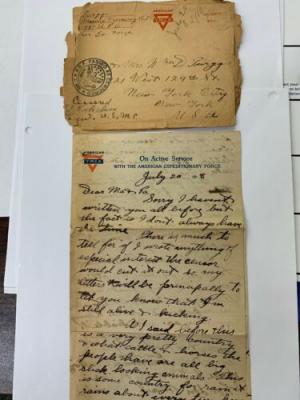 Mrs. Wm D.
West 129th St
New York City
New York
U S a
U.S.M.C.
AMERICAN
YMCA
On Active Service
WITH THE AMERICAN EXPEDITIONARY FORCE
July 20 18
Dear Ma & Pa
Sorry I haven't
written you all before but
the fact is I don't always have
the time. There is much to
tell for if I wrote anything of
especial interest the censor
would cut it out so my
letters will be principally to
let you know that I'm
still alive & kicking
As I said before this
is a very pretty country
& what cattle & horses the
people have are all big
slick looking animals. This
is some country for rain it
rains about every